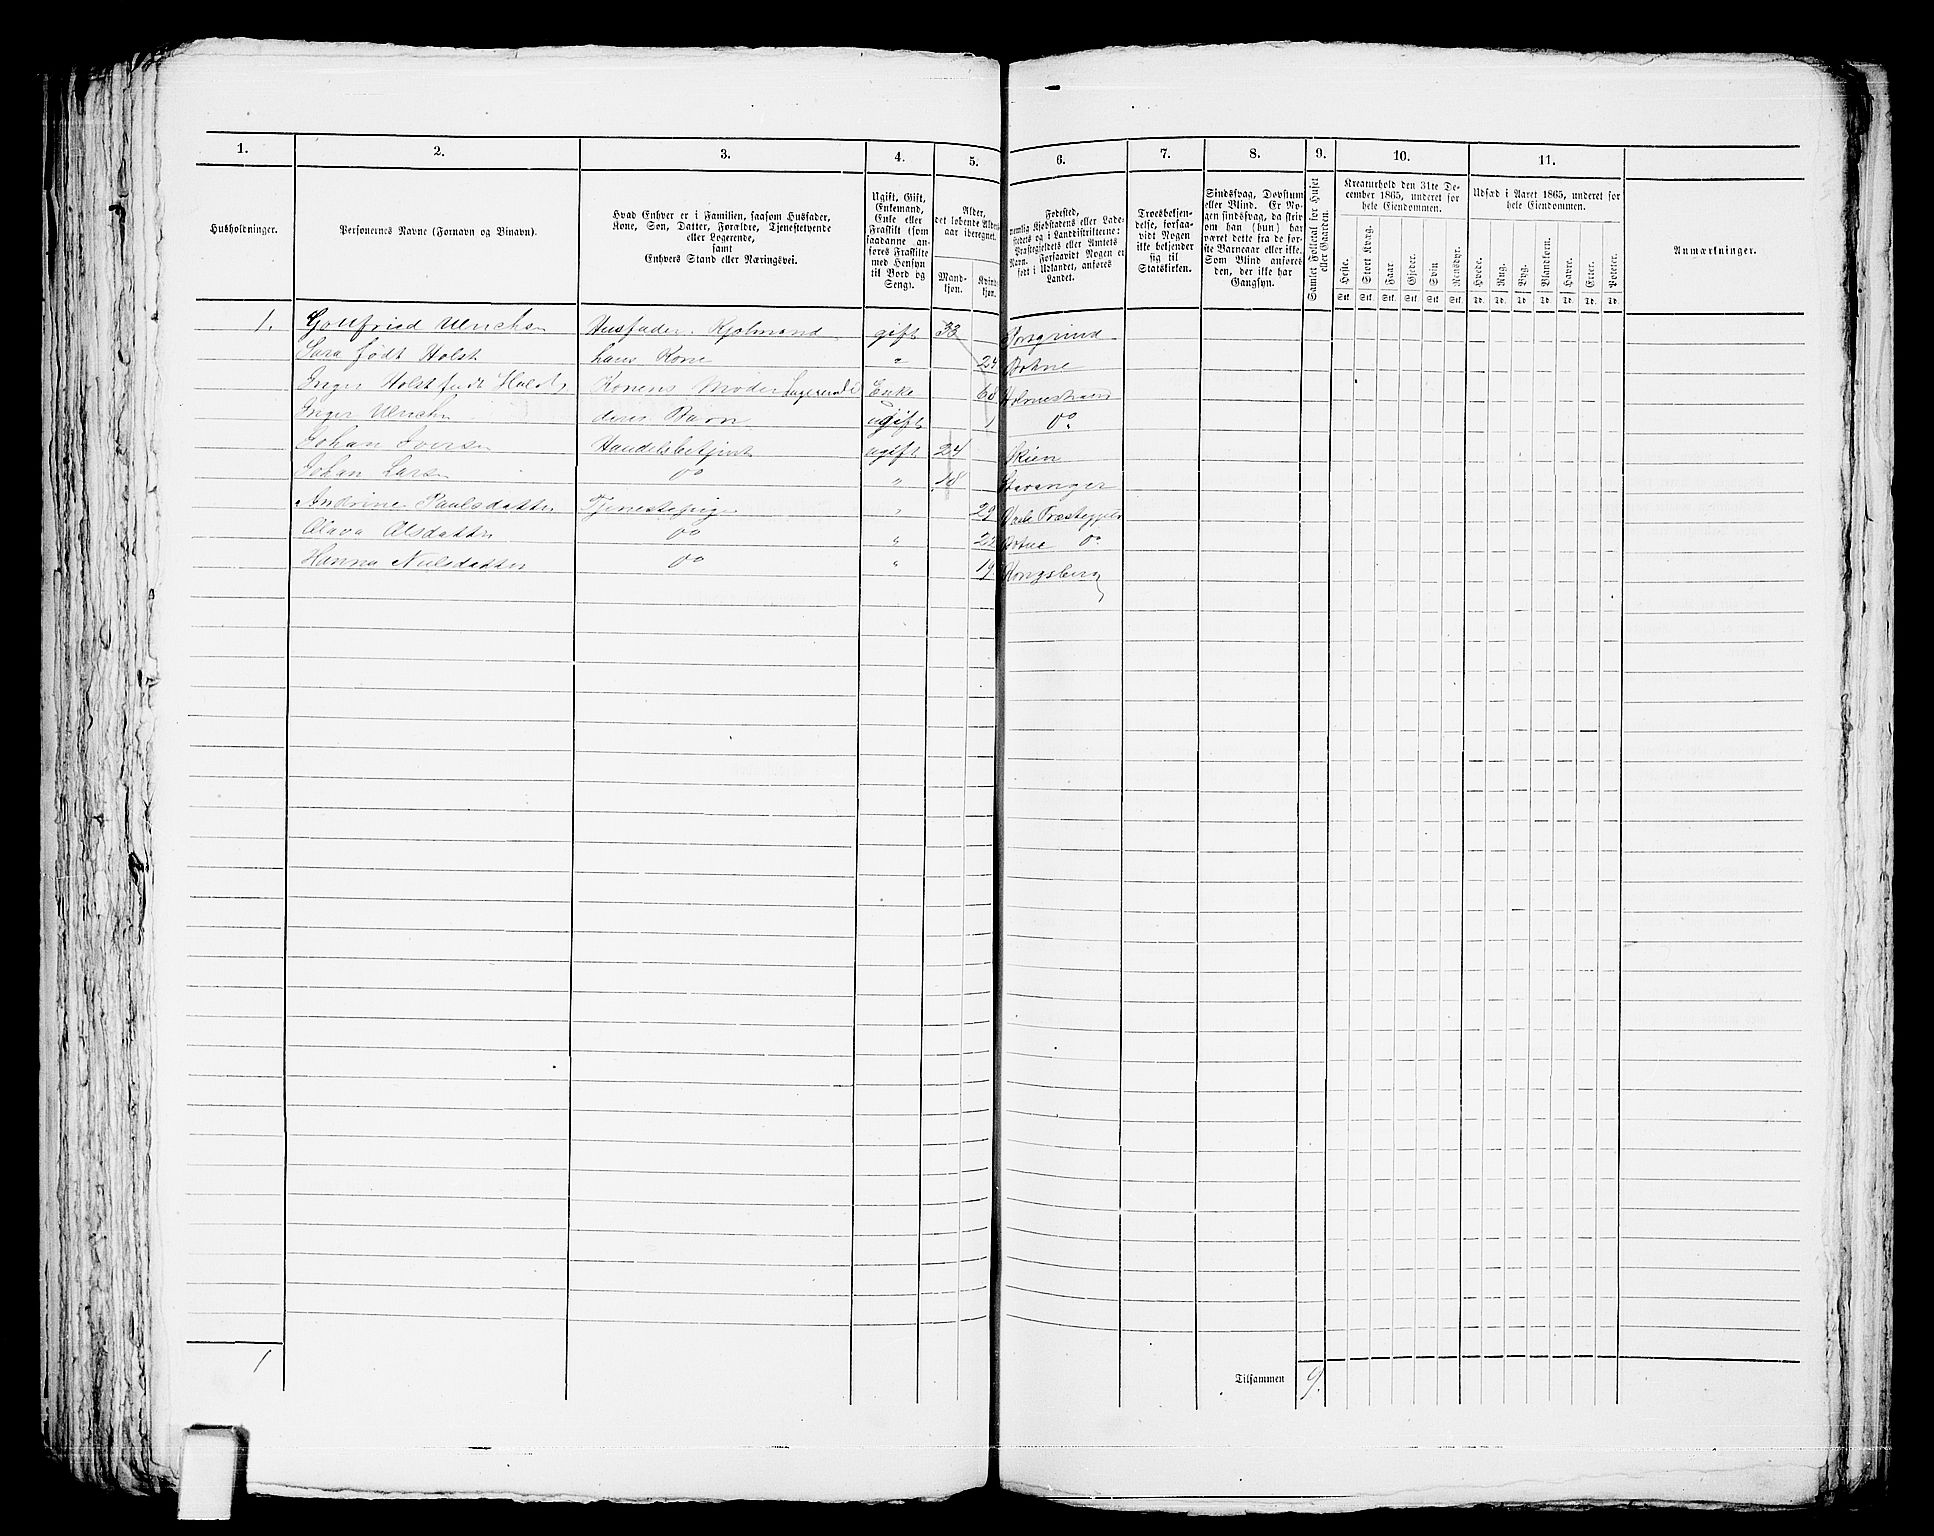 1. 2. 3. 4. 5. 6. 7. 8. 9. 10. 11.
Husholdninger.
Personernes Navne (Fornavn og Binavn).
Hvad Enhver er i Familien, saasom Husfader,
Kone, Søn, Datter, Forældre, Tjenestetyende
eller Logerende,
samt
Enhvers Stand eller Næringsvei.
Ugift, Gift,
Enkemand,
Enke eller
Fraskilt (som
saadanne an-
føres Fraskilte
med Hensyn
til Bord og
Seng).
Alder,
det løbende Alders-
aar iberegnet.
Mand-
kjøn.
Kvind-
kjøn.
Fødested,
nemlig Kjøbstadens eller Lade-
stedets og i Landdistrikterne:
Præstegjeldets eller Amtets
Navn. Forsaavidt Nogen er
født i Udlandet, anføres
Landet.
Troesbekjen-
delse, forsaa-
vidt Nogen
ikke bekjender
sig til
Statskirken.
Sindssvag, Døvstum
eller Blind. Er No-
gen sindssvag, da skriv
om han (hun) har
været dette fra de før-
ste Barneaar eller ikke.
Som Blind anføres
den, der ikke har
Gangsyn.
Samlet Folketal for Huset
eller Gaarden.
Kreaturhold den 31te De-
cember 1865, underet for
hele Eiendommen.
Heste. Stort Kvæg. Faar. Gjeder. Svin. Rensdyr.
Stk. Stk. Stk. Stk. Stk. Stk.
Udsæd i Aaret 1865, underet for
hele Eiendommen.
Hvede. Rug. Byg. Blandkorn. Havre. Erter. Poteter.
Td. Td. Td. Td. Td. Td. Td.
Anmærkninger.
1. Gottfried Ulrichsen Husfader. Kjøbmand gift 33 Porsgrund
Sara født Holst hans Kone " 24 Botne
Inger Holst født Konens Moder Logerende Enke 68 Holmestrand
Inger Ulrichsen deres Barn ugift 1 Do
Johan Iversen Handelsbetjent ugift 24 Skien
Johan Larsen Do " 18 Stavanger
Andrine Paulsdatter Tjenestepige " 29 Præstegjeld
Olava Olsdatter Do " Botne Do
Hanna Nilsdatter Do " 19 Kongsberg
1
Tilsammen 9.